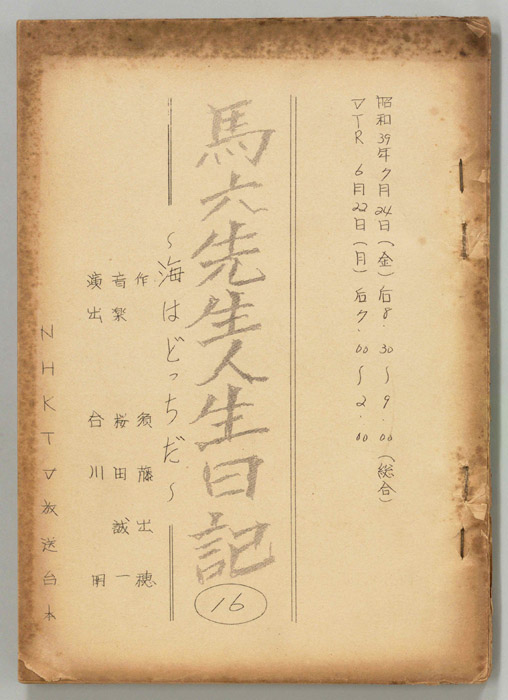 昭和39年7月24日(金)后8.30〜9.00(総合)
VTR 6月22日(月)后7.00〜2.00
馬六先生人生日記
16
〜海はどっちだ〜
作 須藤出穂
音楽 桜田誠一
演出 合川明
NHKTV放送台本